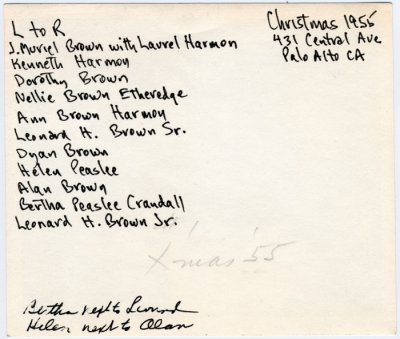 L to R
J. Muriel Brown with Laurel Harmon
Kenneth Harmon
Dorothy Brown
Nellie Brown Etheredge
Ann Brown Harmon
Leonard H. Brown Sr.
Dyan Brown
Helen Peaslee
Alan Brown
Bertha Peaslee Crandall
Leonard H. Brown Jr.
Christmas 1955
431 Central Ave
Palo Alto CA
X'mas '55
Bertha next to Leonard
Helen next to Alan